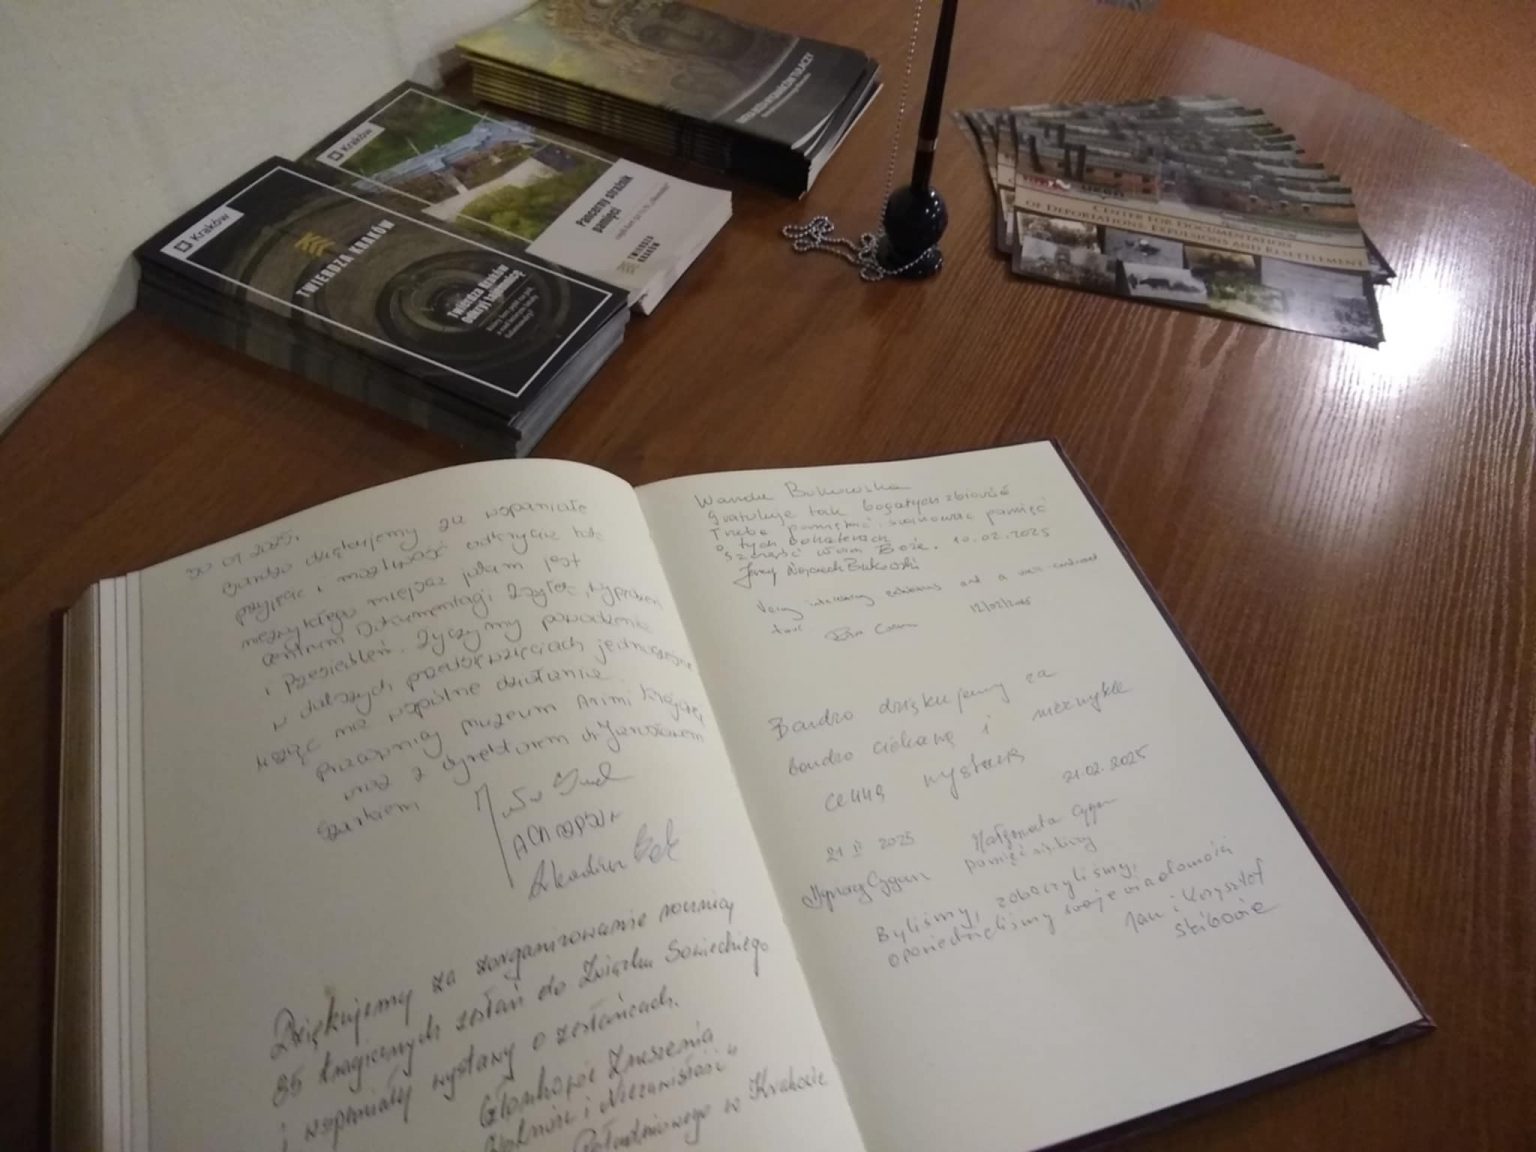 Kraków
TWIERDZA KRAKÓW
Twierdza Kraków
Odkryj tajemnicę
Kraków
Pancerny strażnik
pamięci
TWIERDZA
KRAKÓW
TUŁACZY
CENTER FOR DOCUMENTATION
OF DEPORTATIONS, EXPULSIONS AND RESETTLEMENT
30 01 2025r.
Bardzo dziękujemy za wspaniałe
przyjęcie i możliwość odkrycia tak
niezwykłego miejsca jakim jest
Centrum Dokumentacji Zsyłek, Wypędzeń
i Przesiedleń. Życzymy powodzenia
w dalszych przedsięwzięciach jednocześnie
licząc na wspólne działania.
pracownicy muzeum Armii Krajowej
wraz z dyrektorem dr Jarosławem
Szarkiem
Dziękujemy za zorganizowanie rocznicy
85 tragicznych zesłań do Związku Sowieckiego
i wspaniałej wystawy o zesłańcach.
Członkowie Zrzeszenia
"Wolność i Niezawisłość"
w Krakowie
Wanda Bukowska
Gratuluję tak bogatych zbiorów
Trzeba pamiętać i szanować pamięć
o tych bohaterach
Szczęść Wam Boże. 10.02.2025
Jerzy Wojciech Bukowski
Very interesting exhibitions and a well-conducted
tour
12/02/2025
Bardzo dziękujemy za
bardzo ciekawą i niezwykle
cenną wystawę
21.02.2025
21 II 2025 Małgorzata Cygan
Ignacy Cygan
Byliśmy, zobaczyliśmy,
Jan i Krzysztof